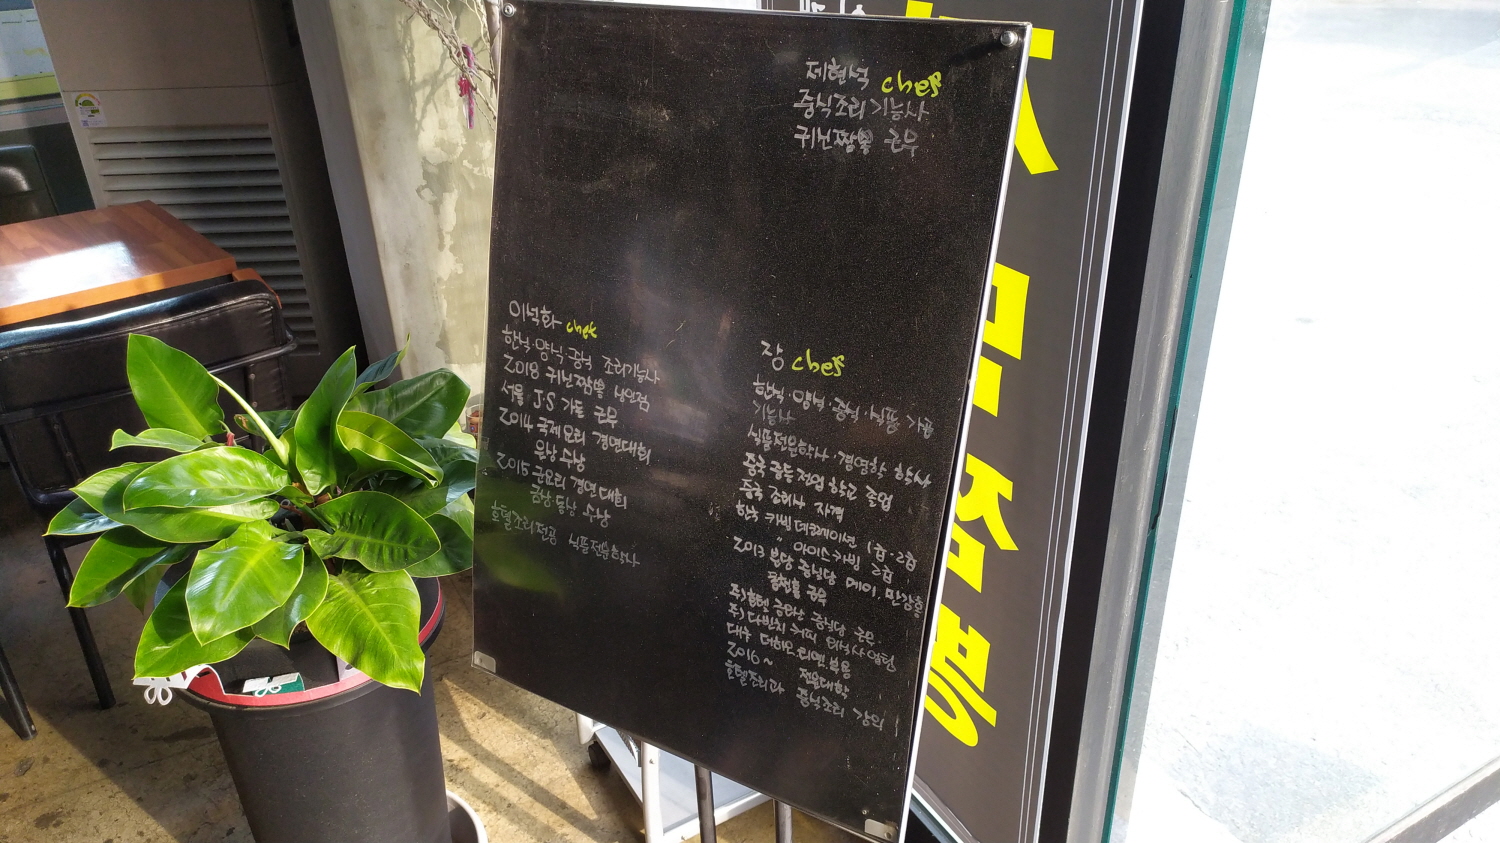 제현석 chef
중식조리기능사
귀빈짬뽕 근무
이석화 chef
한식·양식·중식 조리기능사
2018 귀빈짬뽕
서울 J.S 가든 근무
2014 국제요리 경연대회
수상
2015 군요리 경연대회
금상 동상 수상
호텔조리전공 식품전문학사
장 chef
한식·양식·중식·식품 가공
기능사
식품전문학사·경영학 학사
중국 중등 전업 학교 졸업
중국 조리사 자격
한국 카빙 데코레이션 1급·2급
" 아이스카빙 2급
2013 분당 중식당 메이, 만강홍
근무
주)호텔 금라산 중식당 근무
주) 다빈치 커피
2016~ 전문대학
호텔조리과 중식조리 강의